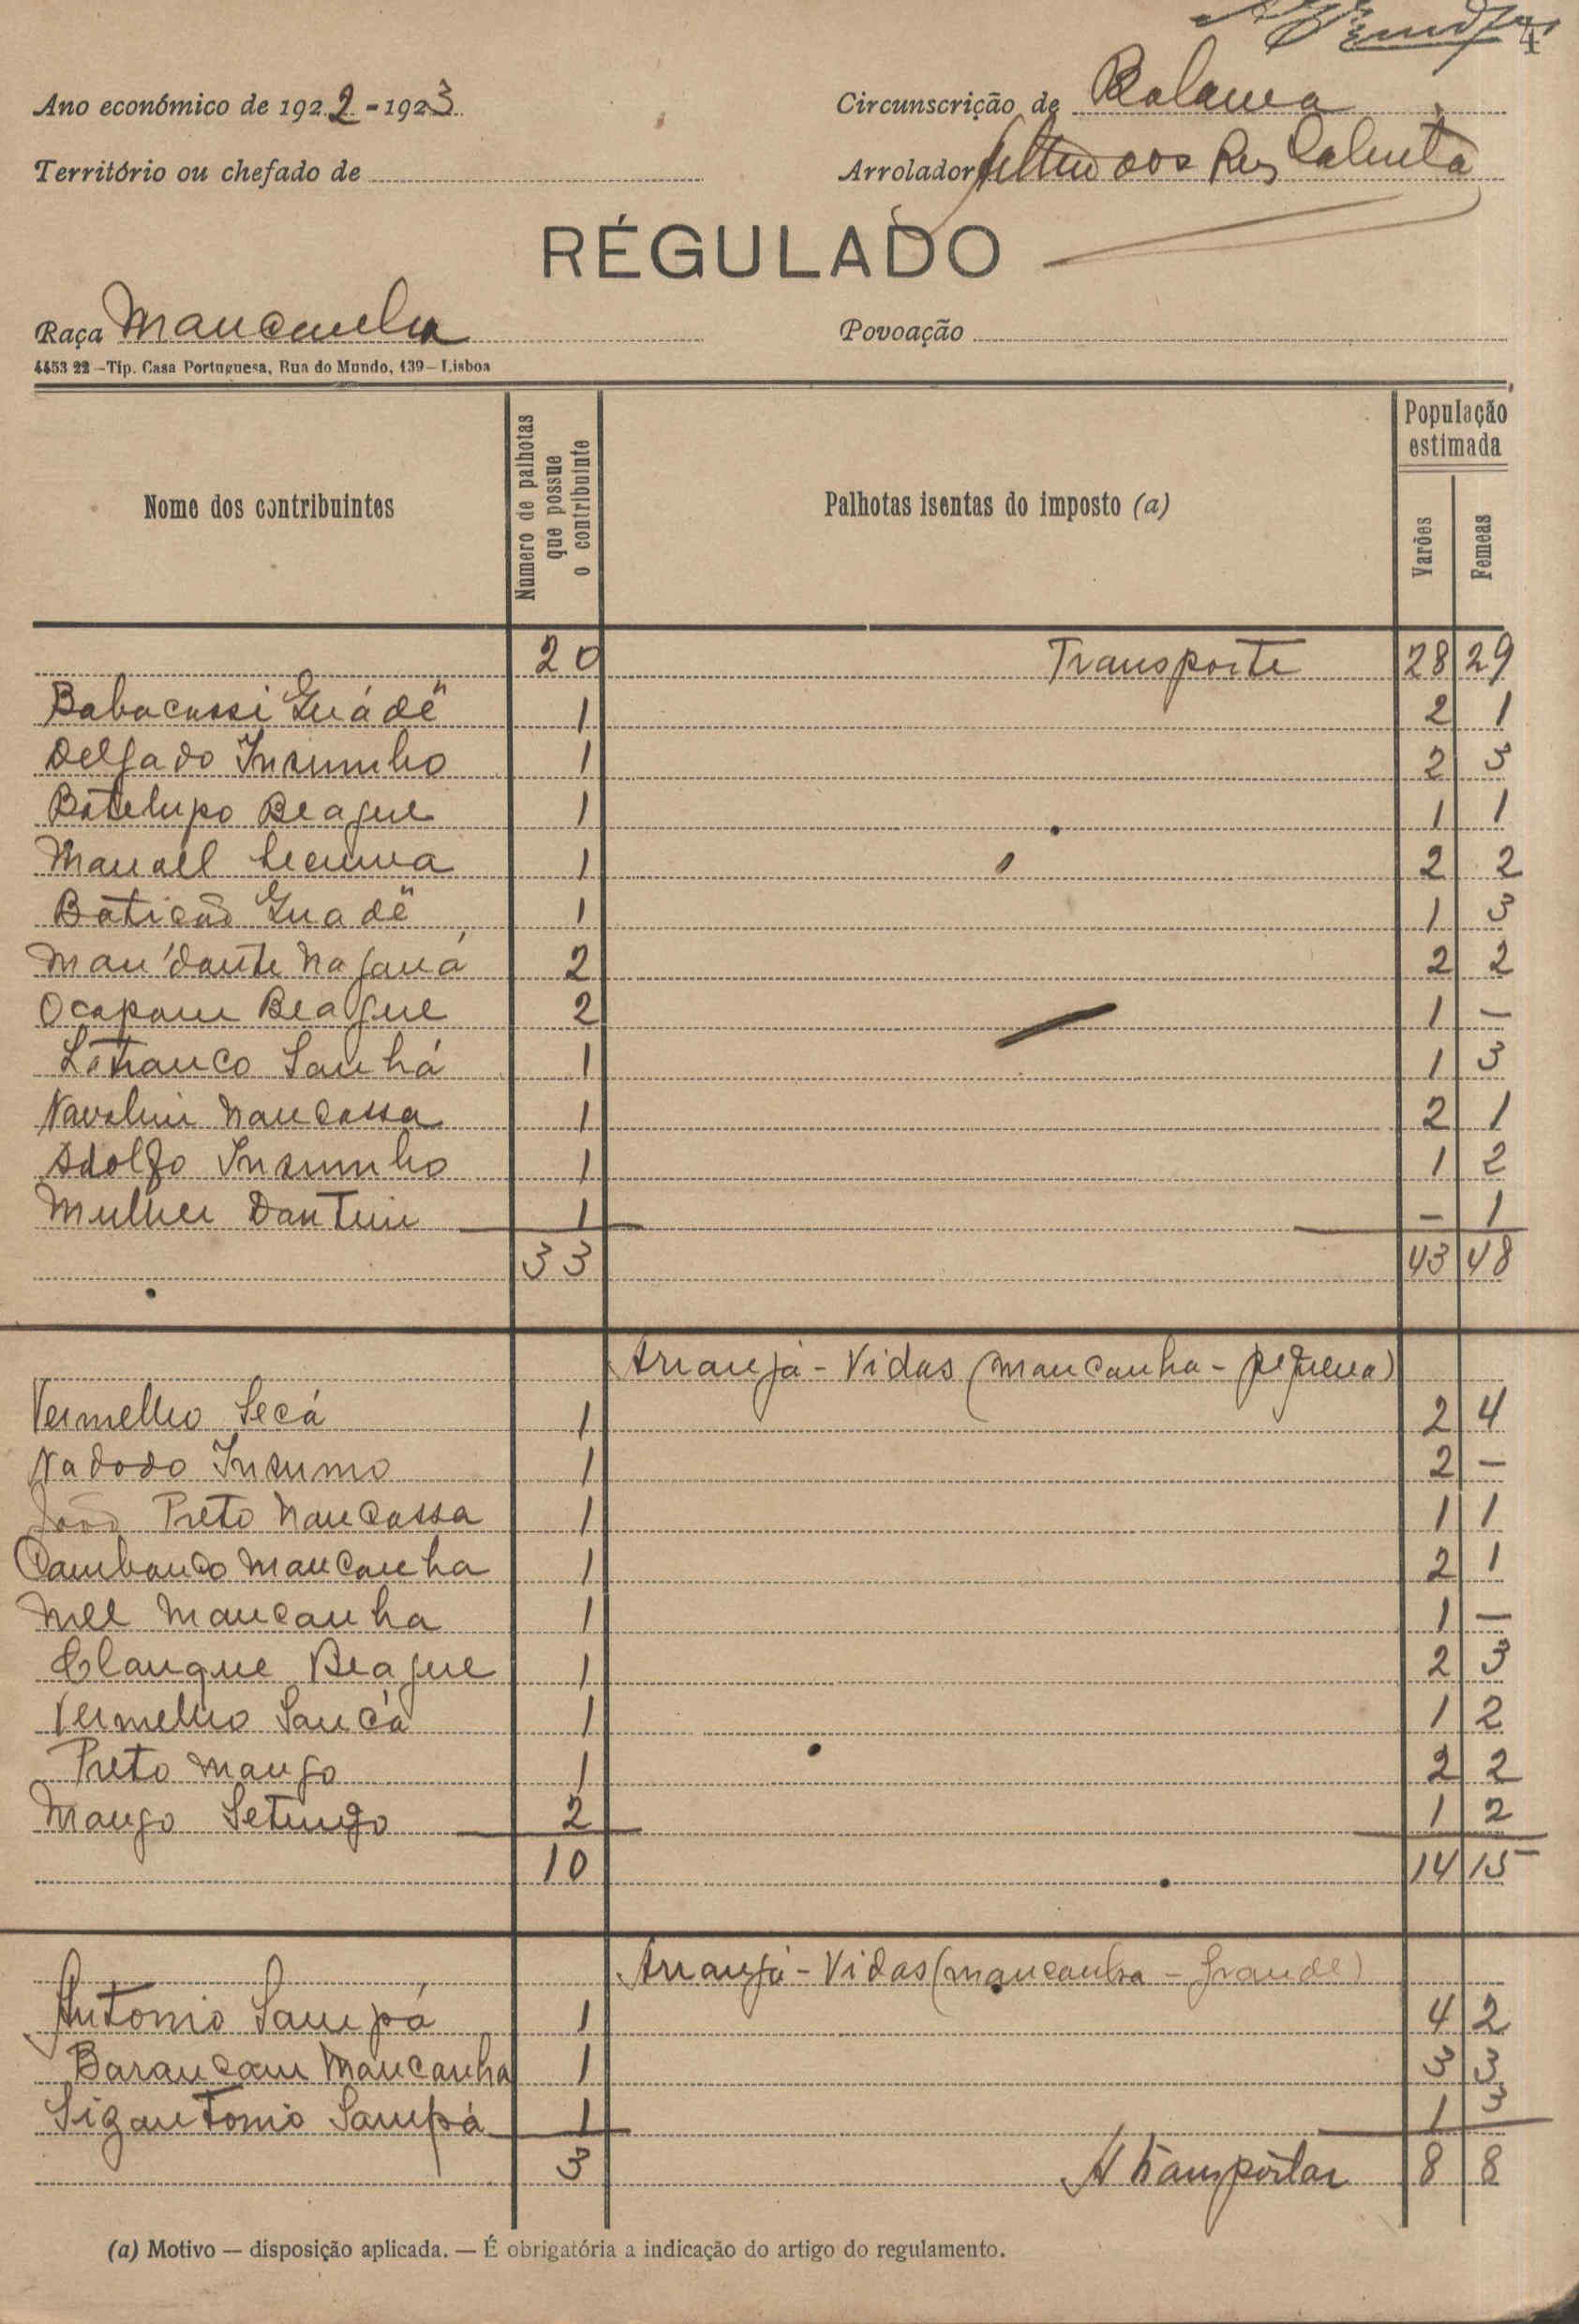 4
Ano económico de 1922-1923
Circunscrição de Bolama
Território ou chefado de
Arrolador
RÉGULADO
Raça Mancanha
Povoação
4453 22 – Tip. Casa Portuguesa, Rua do Mundo, 139 – Lisboa
Nome dos contribuintes
Numero de palhotas que possue o contribuinte
Palhotas isentas do imposto (a)
População estimada
Varões
Femeas
20 Transporte 28 29
Babacassi Guádê 1 2 1
Delgado Insumbo 1 2 3
Batelupo Beague 1 1 1
Manoel 1 2 2
Baticão Guadê 1 1 3
Man'dante Naganá 2 2 2
Ocapam Beague 2 1 –
Sanhá 1 1 3
Nancassa 1 2 1
Adolfo Insumbo 1 1 2
Mulher Dantim 1 – 1
33 43 48
Arranja-Vidas (mancanha - pequena)
Vermelho Secá 1 2 4
Nadodo Insumo 1 2 –
João Preto Nancassa 1 1 1
Cambanco Mancanha 1 2 1
Mel Mancanha 1 1 –
Clanque Beague 1 2 3
Vermelho Sancá 1 1 2
Preto Mango 1 2 2
Mango Setungo 2 1 2
10 14 15
Arranja-Vidas (mancanha - grande)
Antonio Sampá 1 4 2
Barancam Mancanha 1 3 3
Sigantonio Sampá 1 1 3
3 A transportar 8 8
(a) Motivo — disposição aplicada. — É obrigatória a indicação do artigo do regulamento.